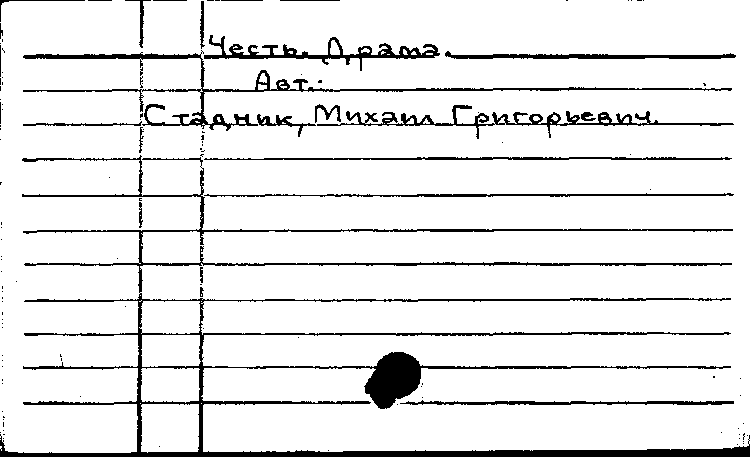 Честь. Драма.
Авт.:
Стадник, Михаил Григорьевич.